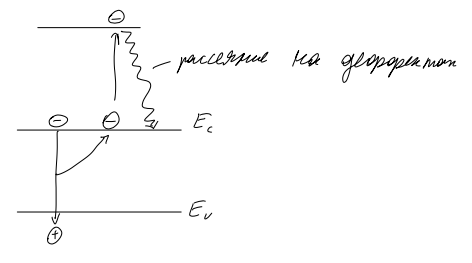 ⊖
рассеяние на деффектах
⊖ ⊖ E_c
E_v
⊕